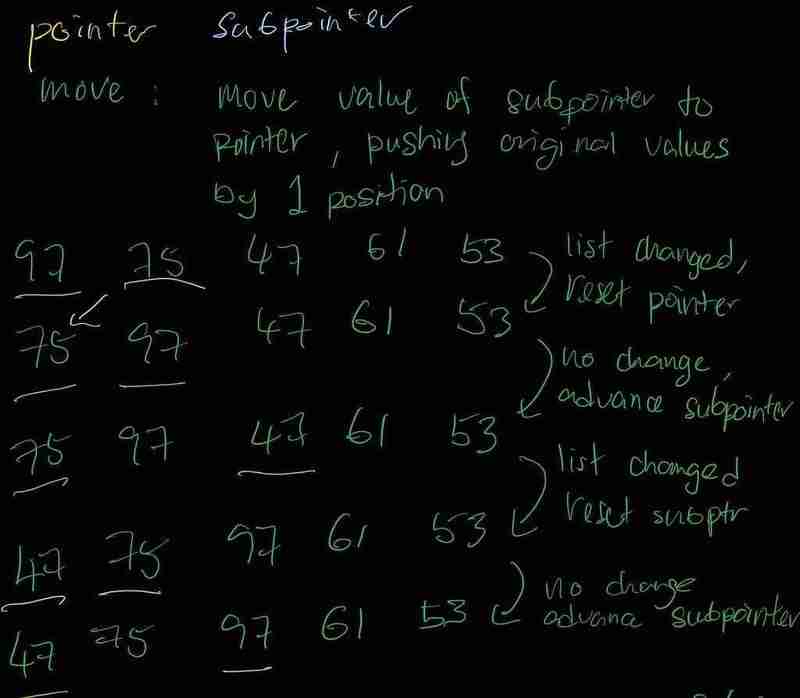 pointer subpointer
move : move value of subpointer to
pointer, pushing original values
by 1 position
97 75 47 61 53 list changed,
reset pointer
75 97 47 61 53
no change,
advance subpointer
75 97 47 61 53
list changed
reset subptr
47 75 97 61 53
no change
advance subpointer
47 75 97 61 53